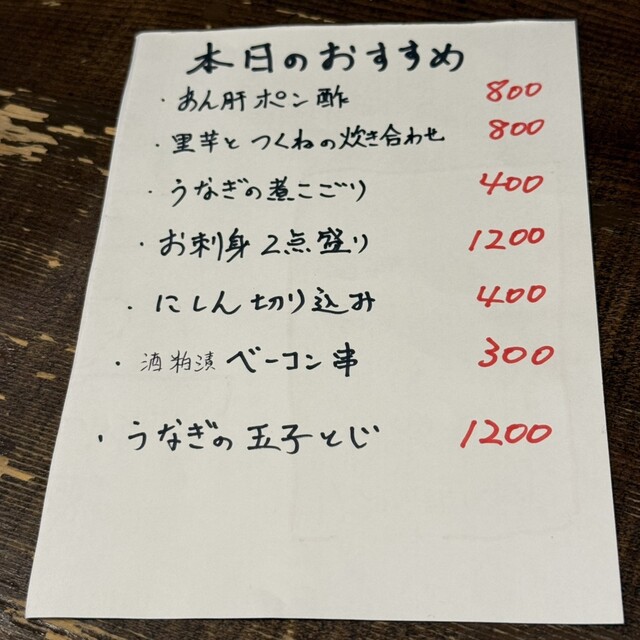 本日のおすすめ
・あん肝ポン酢 800
・里芋とつくねの炊き合わせ 800
・うなぎの煮こごり 400
・お刺身2点盛り 1200
・にしん切り込み 400
・酒粕漬ベーコン串 300
・うなぎの玉子とじ 1200